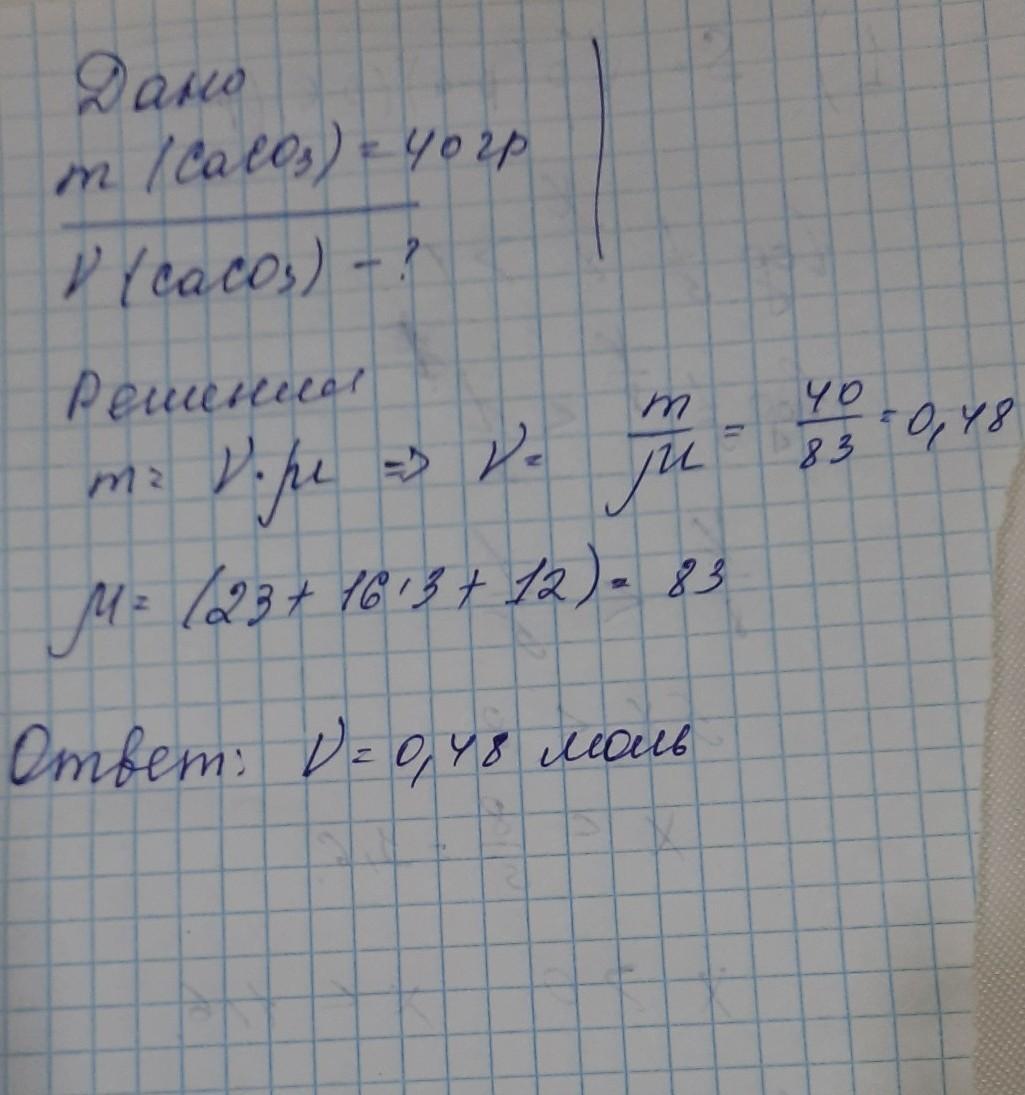 Дано
m (CaCO₃) = 40 гр
ν (CaCO₃) - ?
Решения
m = ν · μ => ν = m/μ = 40/83 = 0,48
μ = (23 + 16 · 3 + 12) = 83
Ответ: ν = 0,48 моль